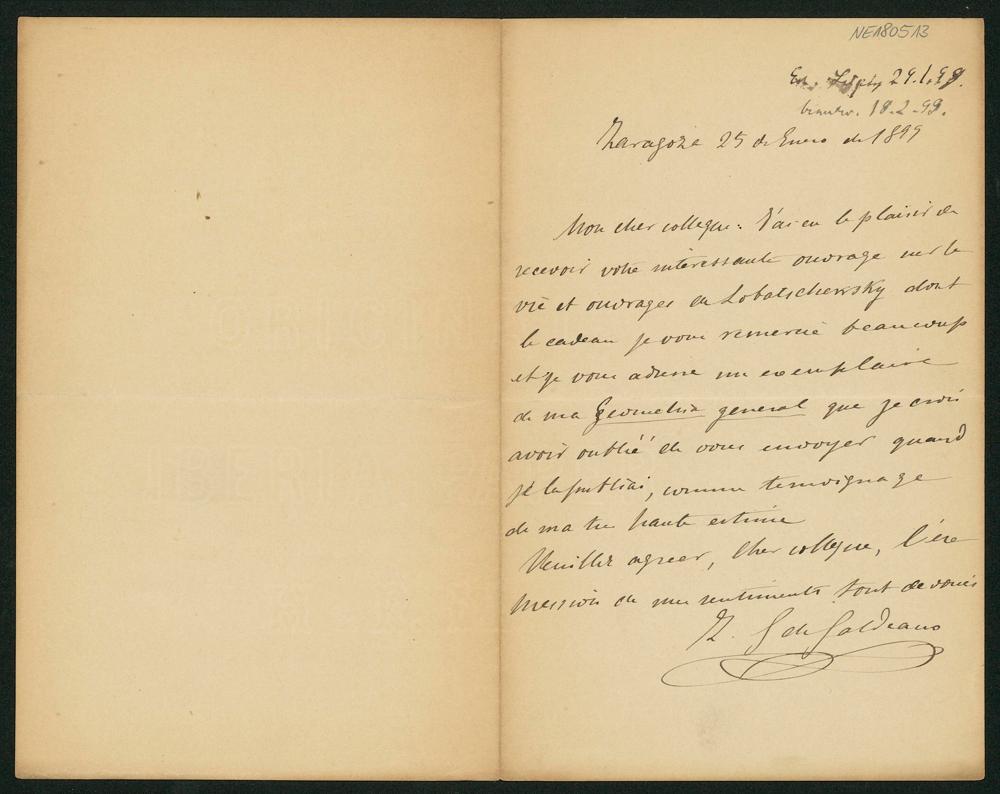 NE180513
29.1.99.
18.2.99.
Zaragoza 25 de Enero de 1899
Mon cher collegue: J'ai eu le plaisir de
recevoir votre interessante ouvrage sur la
vie et ouvrages de Lobatschewsky dont
le cadeau je vous remercie beaucoup
et je vous adresse un exemplaire
de ma Geometria general que je crois
avoir oublié de vous envoyer quand
je la publiai, comme temoignage
de ma tre haute estime
Veuillez agreer, cher collegue, l'ex
pression de mes sentiments tout devoués
Z. G de Galdeano